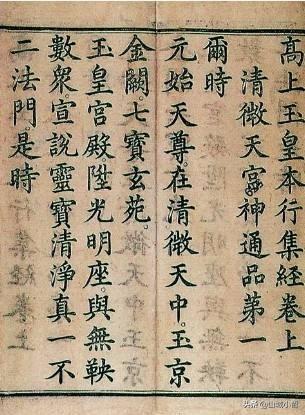 高上玉皇本行集經卷上
清微天宮神通品第一
爾時
元始天尊。在清微天中。玉京
金闕。七寶玄苑。
玉皇宮殿。陞光明座。與無鞅
數衆。宣說靈寶清淨真一不
二法門。是時
头条@山城小萌